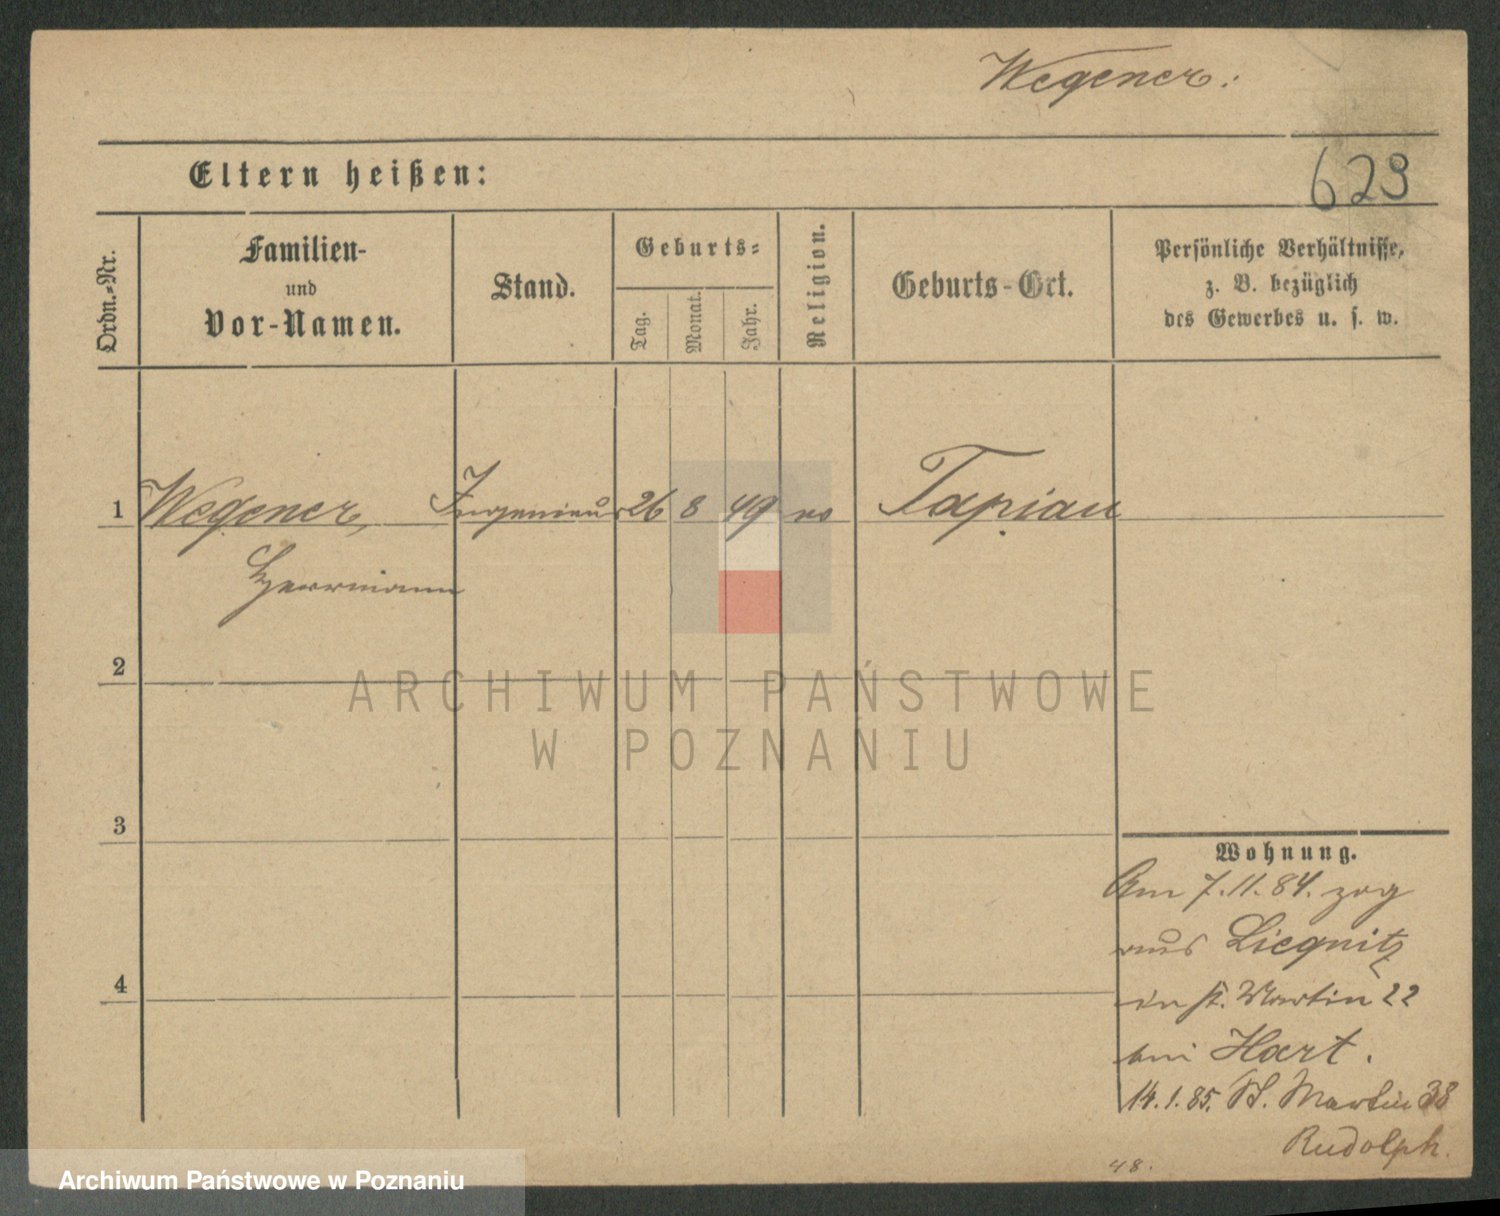 Wegener:
Eltern heißen:
623
Ordn.-Nr.
Familien-
und
Vor-Namen.
Stand.
Geburts-
Tag.
Monat.
Jahr.
Religion.
Geburts-Ort.
Persönliche Verhältnisse,
z. B. bezüglich
des Gewerbes u. s. w.
1 Wegener, Ingenieur 26 8 49 ev Tapiau
Herrmann
2
ARCHIWUM PAŃSTWOWE
W POZNANIU
3
4
Wohnung.
Am 7.11.84. zog
aus Liegnitz
in St. Martin 22
bei Hart.
14.1.85. St. Martin 38
Rudolph.
48.
Archiwum Państwowe w Poznaniu